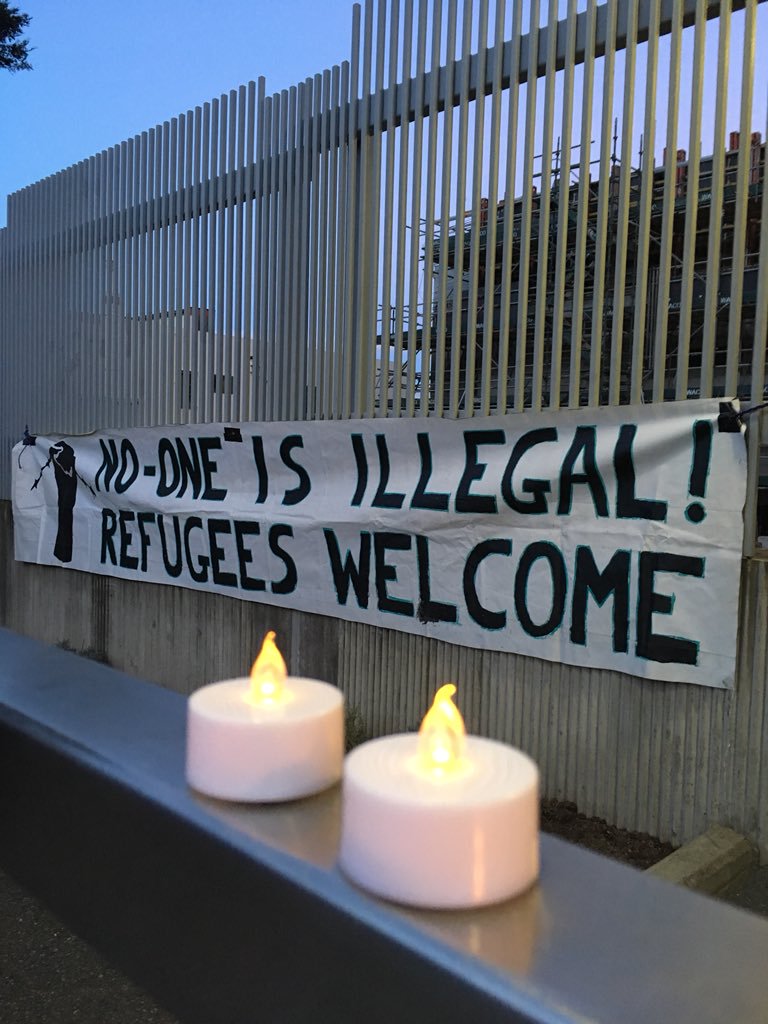 NO-ONE IS ILLEGAL!
REFUGEES WELCOME